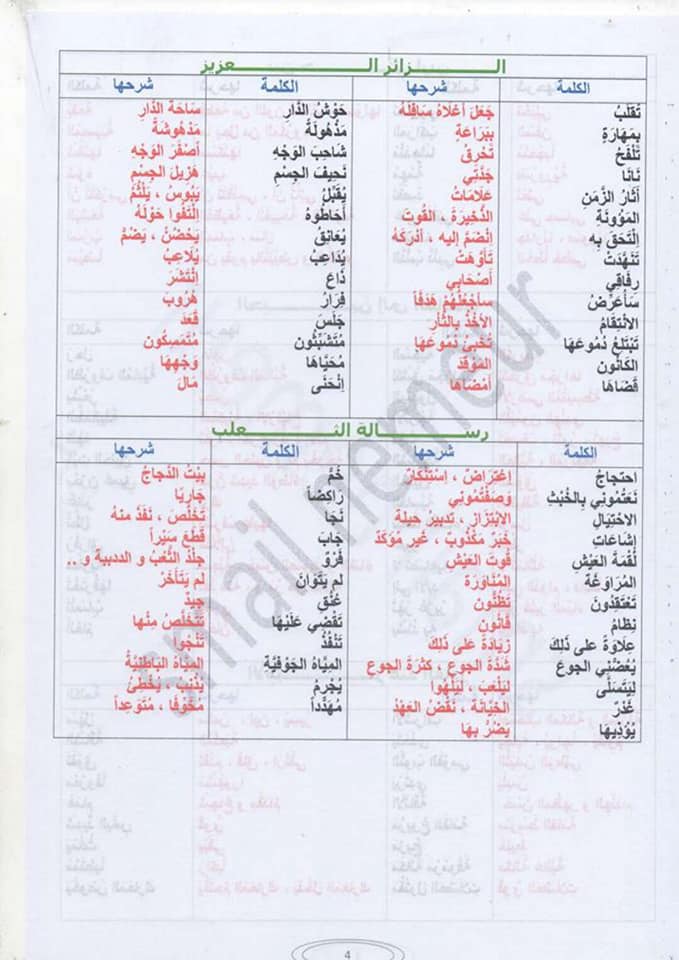 الزائر العزيز
الكلمة شرحها الكلمة شرحها
تقلبُ جَعَلَ أعْلَاهُ سَافِلَهُ حَوْشُ الدَّارِ سَاحَةُ الدَّارِ
بِمَهَارَةٍ بِبَرَاعَةٍ مَذْهُولَةٌ مَدْهُوشَةٌ
تَلْفَحُ تَحْرِقُ شَاحِبَ الوَجْهِ أصْفَرَ الوَجْهِ
نَانَا جَدَّتِي نَحِيفَ الجِسْمِ هَزِيلَ الجِسْمِ
آثَارُ الزَّمَنِ عَلَامَاتُ يُقَبِّلُ يَبُوسُ ، يَلْثُمُ
المَؤُونَةُ الذَّخِيرَةُ ، القُوتُ أحَاطُوهُ الْتَفُّوا حَوْلَهُ
الْتَحَقَ بِهِ انْضَمَّ إليه ، أدْرَكَهُ يُعَانِقُ يَحْضُنُ ، يَضُمُّ
تَنَهَّدَتْ تَأوَّهَتْ يُدَاعِبُ يُلَاعِبُ
رِفَاقِي أصْحَابِي ذَاعَ اِنْتَشَرَ
سَأُعَرِّضُ سأجْعَلُهُمْ هَدَفاً فِرَارُ هُرُوبَ
الانْتِقَامُ الأخْذُ بِالثَّأْرِ جَلَسَ قَعَدَ
تَبْتَلِعُ دُمُوعَهَا تُخَبِّئُ دُمُوعَهَا مُتَشَبِّثُونَ مُتَمَسِّكُون
الكَانُون المَوْقِدَ مُحَيَّاهَا وَجْهِهَا
قَضَاهَا أمْضَاهَا اِنْحَنَى مَالَ
رسالة الثعلب
الكلمة شرحها الكلمة شرحها
احتجاجُ اِعْتِرَاضُ ، اِسْتِنْكَارٌ خُمَّ بَيْتُ الدَّجَاجُ
نَعَتُّمُونِي بِالخُبْثِ وَصَفْتُمُونِي رَاكِضاً جَارِيًا
الاحْتِيَالِ الابْتِزَازِ ، تَدْبِيرَ حِيلَة نَجَا تَخَلَّصَ ، نَفَذَ منه
إشَاعَاتٍ خَبَرٌ مَكْذُوبٌ ، غير مُوَكَدَ جَابَ قَطَعَ سَيْراً
لُقْمَةُ العَيْشِ قُوتَ العَيْشِ فَرْوٌ جِلْدُ الثَّعْب و الددبية و ..
المُرَاوَغَةُ المُنَاوَرَةُ لم يَتَوَانَ لم يَتَأخَّرْ
تَعْتَقِدُونَ تَظُنُّون عُنُقِ جِيدٌ
نِظَامُ قَانُون تَقْضِي عَلَيْهَا تَتَخَلَّصُ مِنْهَا
عِلَاوَةً عَلَى ذَلِكَ زِيَادَةً على ذَلِكَ تَنْفُذُ تَنْجُوا
يَعُضُّنِي الجوعَ شَدَّةُ الجوع ، كَثْرَةُ الجوع المِيَاهُ الجَوْفِيَّةُ المِيَاهُ البَاطِنِيَّةُ
لِيَتَسَلَّى لِيَلْعَبَ ، لِيَلْهُوا يُجْرِمُ يُذْنِبُ ، يُخْطِئُ
غَدْرٌ الخِيَانَةُ ، نَقْضُ العَهْدِ مُهَدِّداً مُخَوِّفًا ، مُتَوَعِداً
يُؤْذِيهَا يَضُرُّ بِهَا
smail nemeur
4